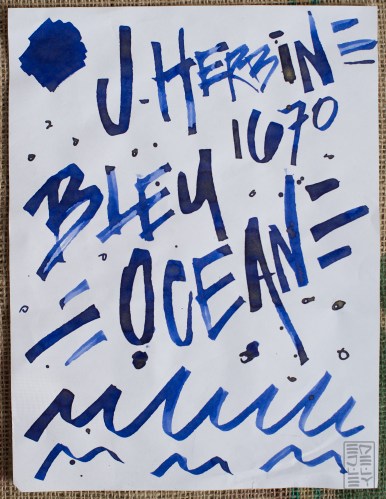 J. HERBIN
1670
BLEU
OCEAN